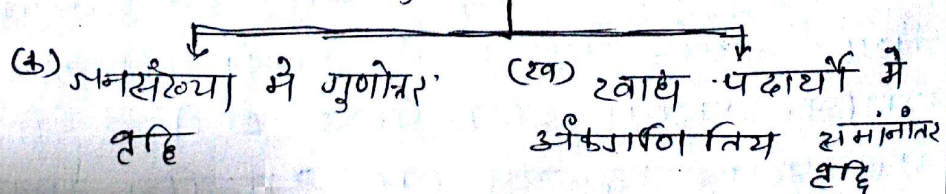 (क) जनसंख्या मे गुणोत्तर
वृद्धि
(ख) खाद्य पदार्थों मे
अंकगाणितिय समांनांतर
वृद्धि